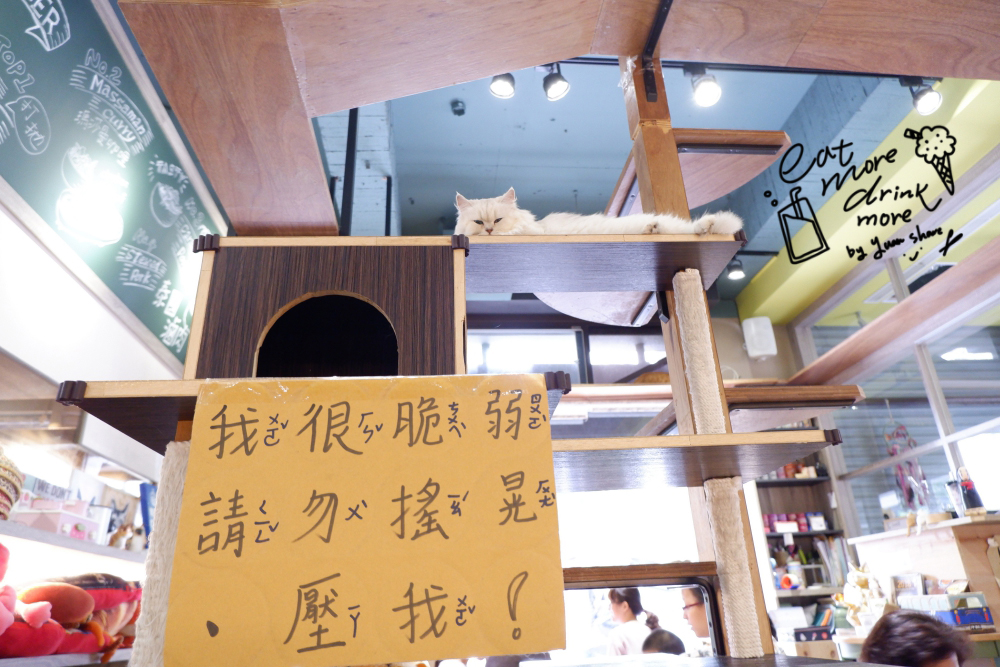 我ㄨㄛˇ很ㄏㄣˇ脆ㄘㄨㄟˋ弱ㄖㄨㄛˋ
請ㄑㄧㄥˇ勿ㄨˋ搖ㄧㄠˊ晃ㄏㄨㄤˋ
、壓ㄧㄚ我ㄨㄛˇ！
TOP1
打拋
No.2
Massaman
Curry
TASTY
Pork
eat
more
drink
more
by yuan share
I WE DON'T